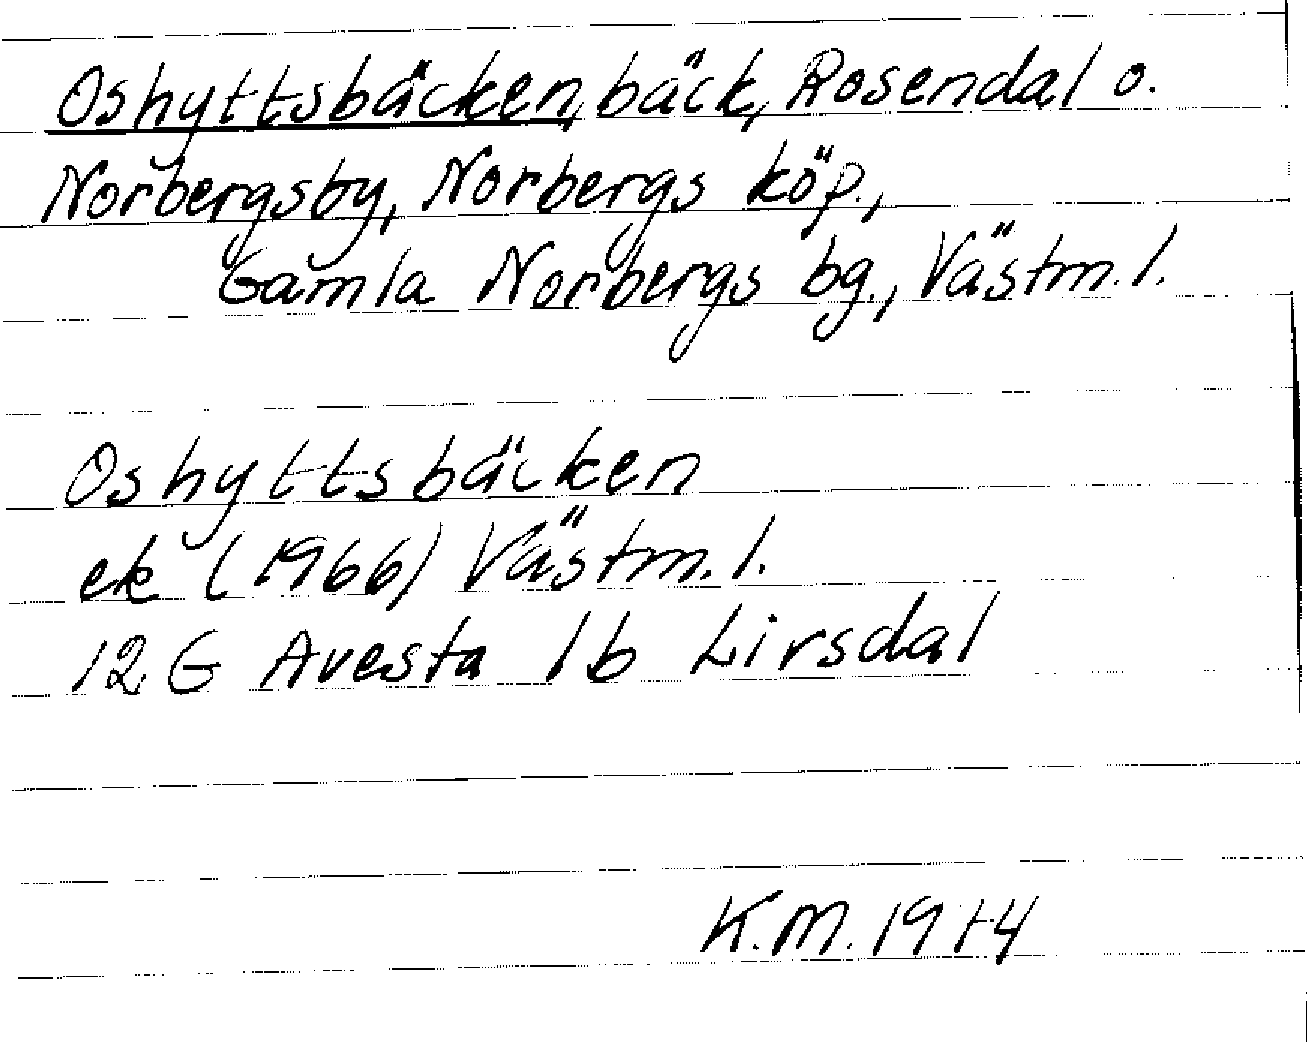 Oshyttsbäcken, bäck, Rosendal o.
Norbergsby, Norbergs köp.,
Gamla Norbergs bg., Västm.l.
Oshyttsbäcken
ek (1966) Västm.l.
12 G Avesta 1b Lirsdal
K.M. 1974